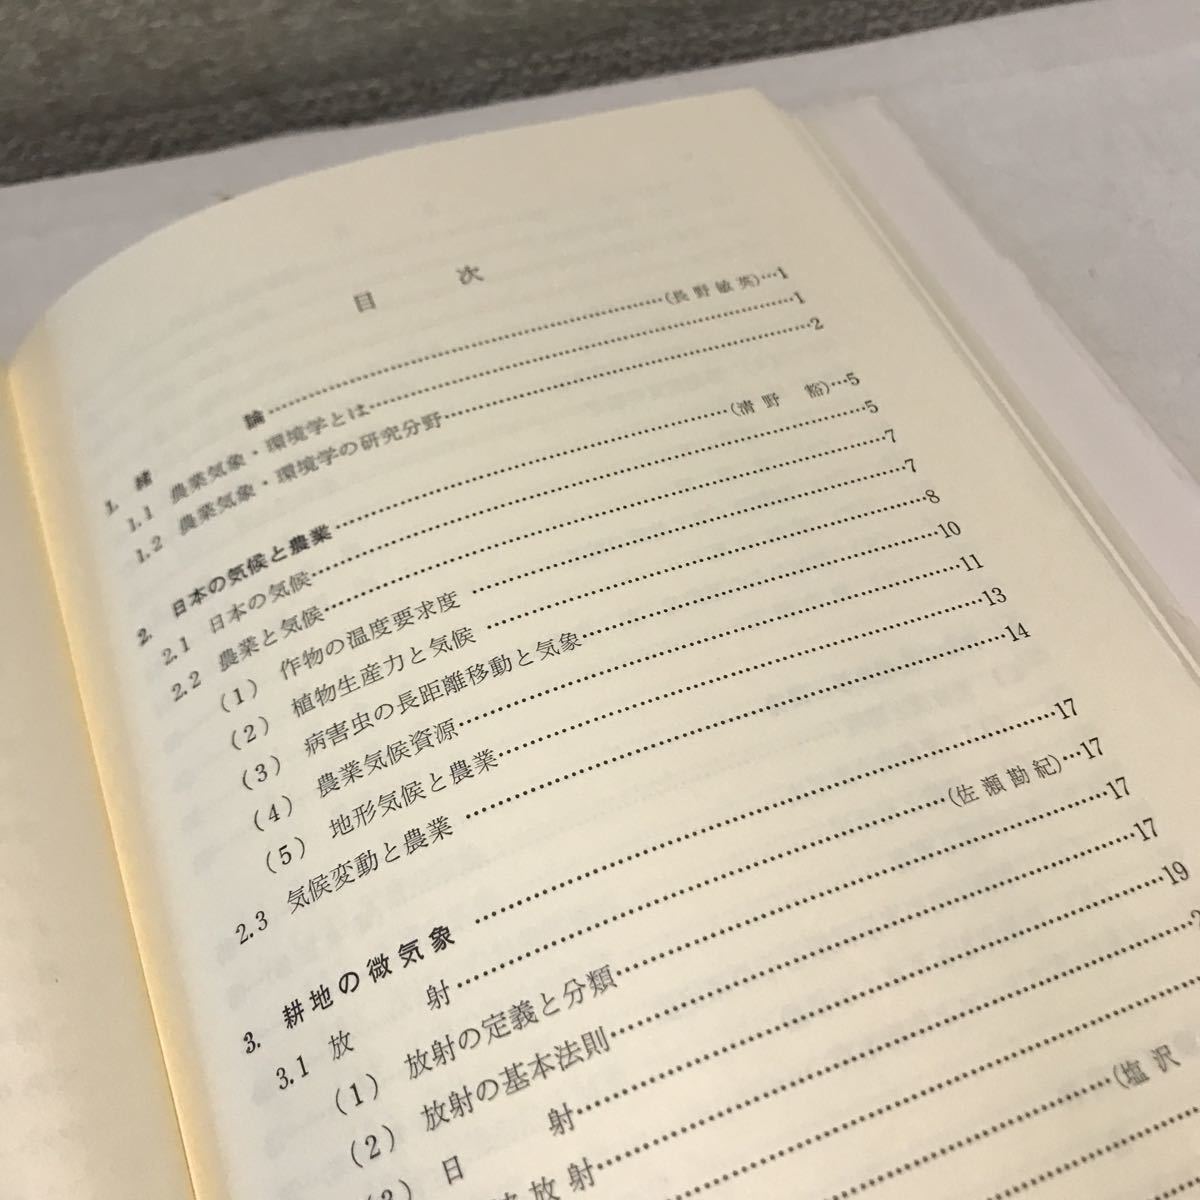 目 次
1. 緒 論……(長野敏英)…1
1.1 農業気象・環境学とは……1
1.2 農業気象・環境学の研究分野……2
2. 日本の気候と農業……(清野 豁)…5
2.1 日本の気候……5
2.2 農業と気候……7
(1) 作物の温度要求度……7
(2) 植物生産力と気候……8
(3) 病害虫の長距離移動と気象……10
(4) 農業気候資源……11
(5) 地形気候と農業……13
2.3 気候変動と農業……14
3. 耕地の微気象……17
3.1 放 射……(佐瀬勘紀)…17
(1) 放射の定義と分類……17
(2) 放射の基本法則……17
(3) 日 射……19
放射……2
(塩沢